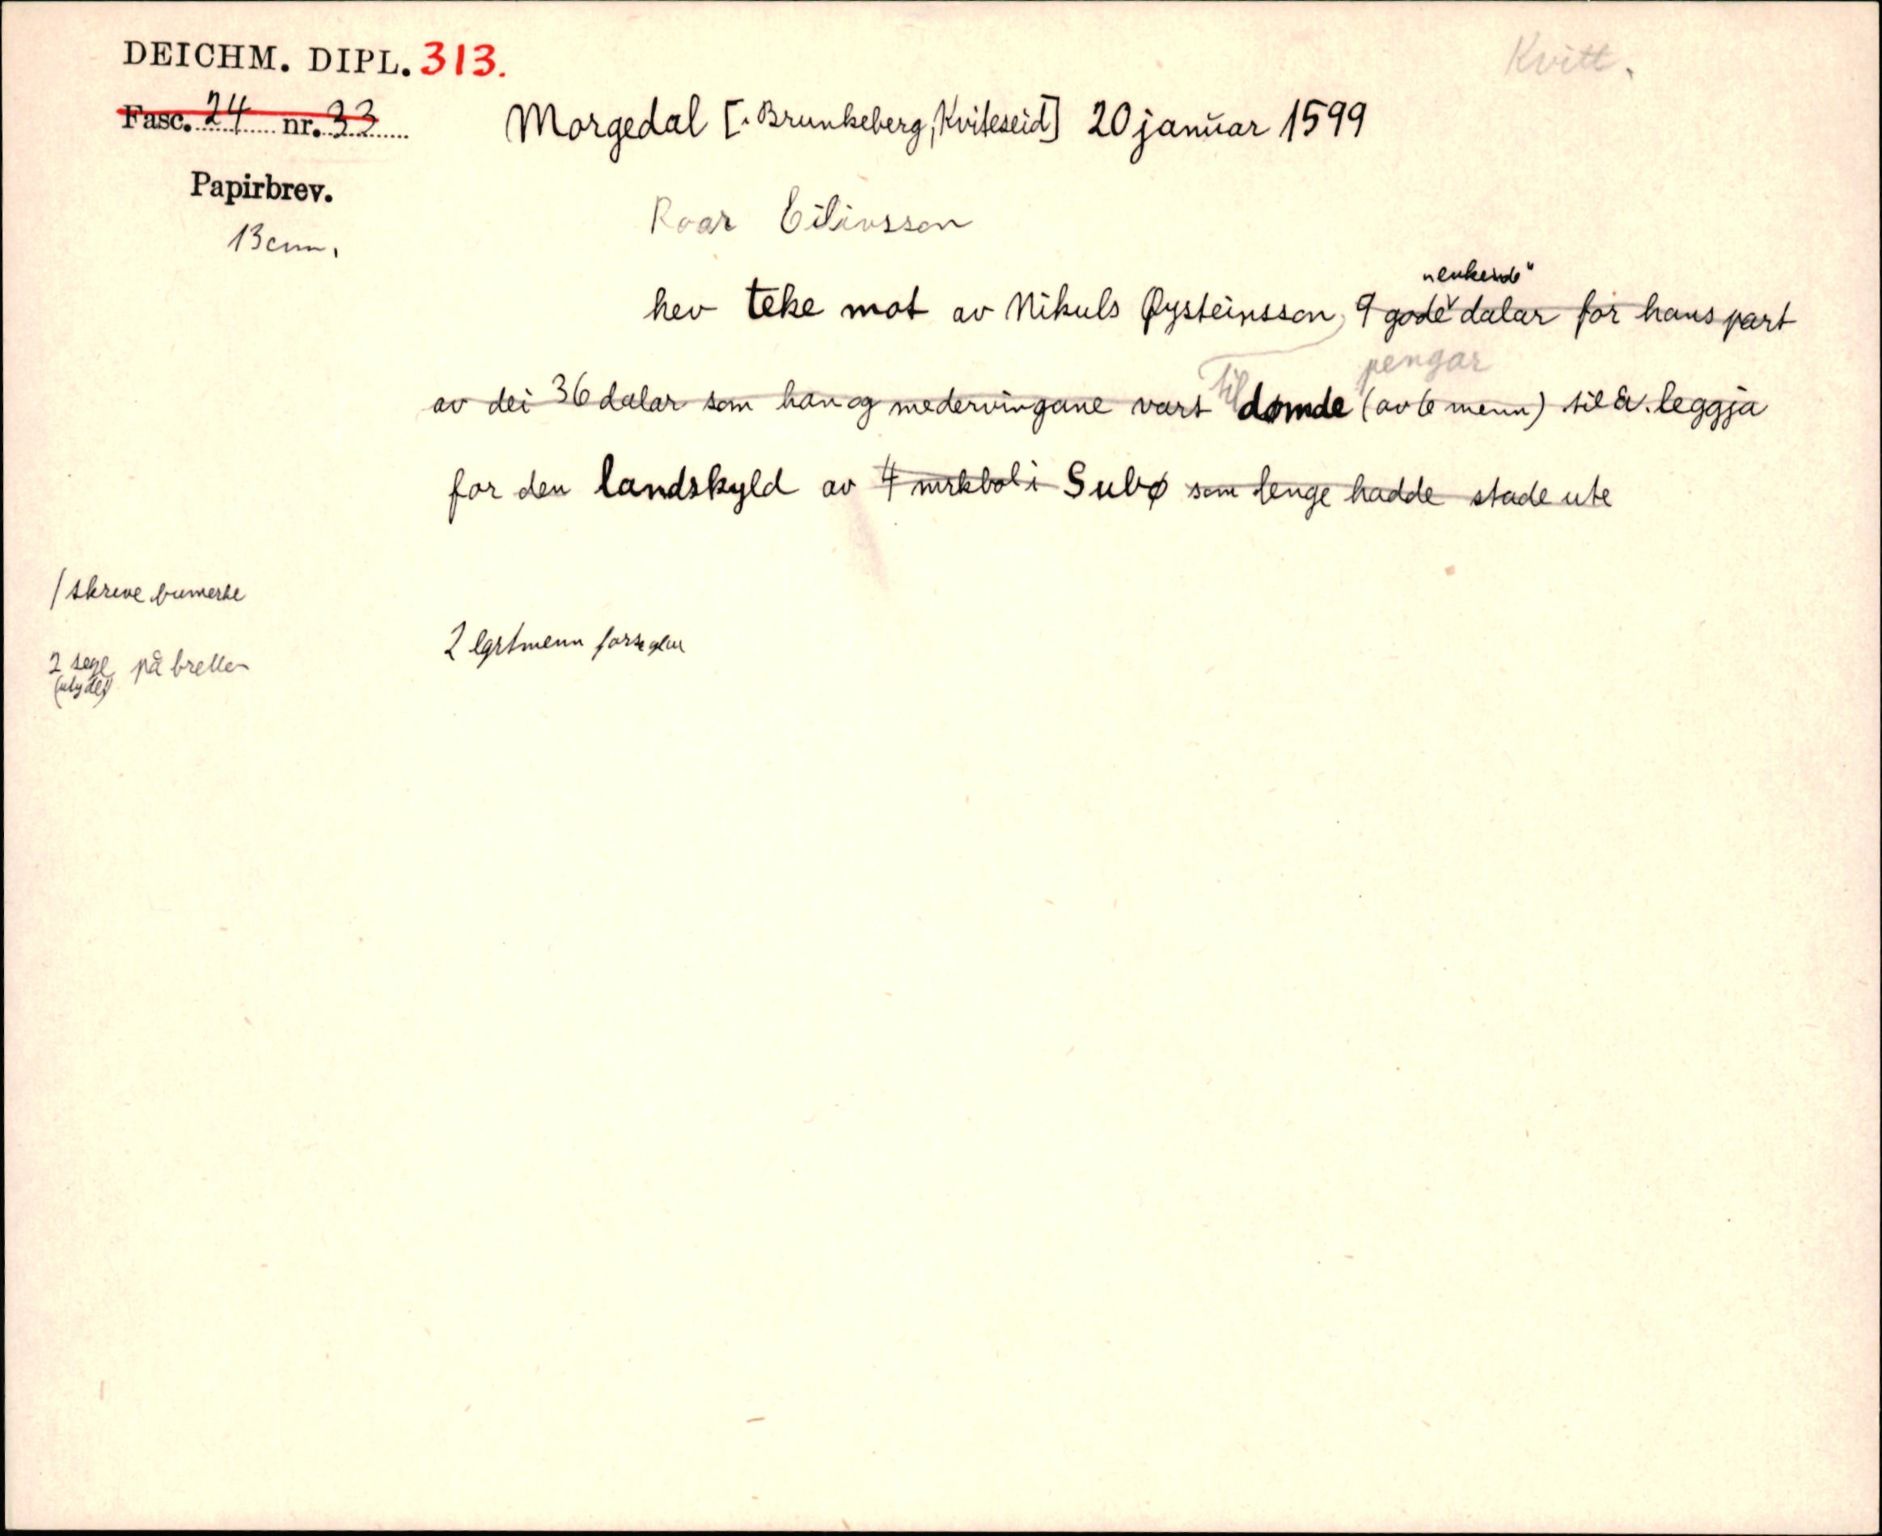 DEICHM. DIPL. 313.
Kvitt.
Fasc. 24 nr. 33
Morgedal [. Brunkeberg, Kviteseid] 20 januar 1599
Papirbrev.
13 cm.
Roar Eilivsson
"enkende"
hev teke mot av Nikuls Øysteinsson, 9 gode dalar for hans part
pengar
av dei 36 dalar som han og medervingane vart til dømde (av 6 menn) til å leggja
for den landskyld av 4 mrkbol i Subø som lenge hadde stade ute
1 skreve bumerke
2 lgrtmenn forseglar
2 segl på brettet
(utyde)